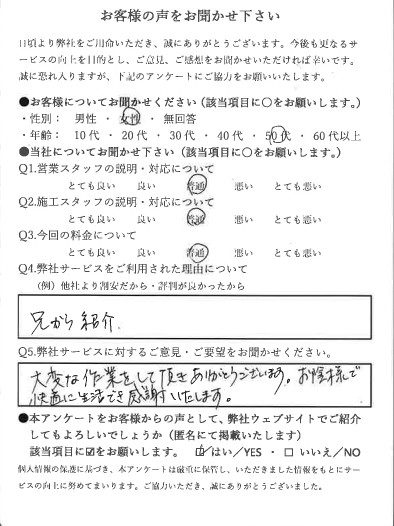 お客様の声をお聞かせ下さい
日頃より弊社をご用命いただき、誠にありがとうございます。今後も更なるサ
ービスの向上を目的とし、ご意見、ご感想をお聞かせいただければ幸いです。
誠に恐れ入りますが、下記のアンケートにご協力をお願いいたします。
●お客様についてお聞かせください（該当項目に○をお願いします。）
・性別： 男性 ・ 女性 ・ 無回答
・年齢： 10代 ・ 20代 ・ 30代 ・ 40代 ・ 50代 ・ 60代以上
●当社についてお聞かせ下さい（該当項目に○をお願いします。）
Q1.営業スタッフの説明・対応について
とても良い 良い 普通 悪い とても悪い
Q2.施工スタッフの説明・対応について
とても良い 良い 普通 悪い とても悪い
Q3.今回の料金について
とても良い 良い 普通 悪い とても悪い
Q4.弊社サービスをご利用された理由について
（例）他社より割安だから・評判が良かったから
兄から紹介.
Q5.弊社サービスに対するご意見・ご要望をお聞かせください。
大変な作業をして頂きありがとうございます。お陰様で
快適に生活でき感謝いたします。
●本アンケートをお客様からの声として、弊社ウェブサイトでご紹介
してもよろしいでしょうか（匿名にて掲載いたします）
該当項目に☑をお願いします。 ☑はい／YES ・ □いいえ／NO
個人情報の保護に基づき、本アンケートは厳重に保管し、いただきました情報をもとにサー
ビスの向上に努めてまいります。ご協力いただき、誠にありがとうございました。